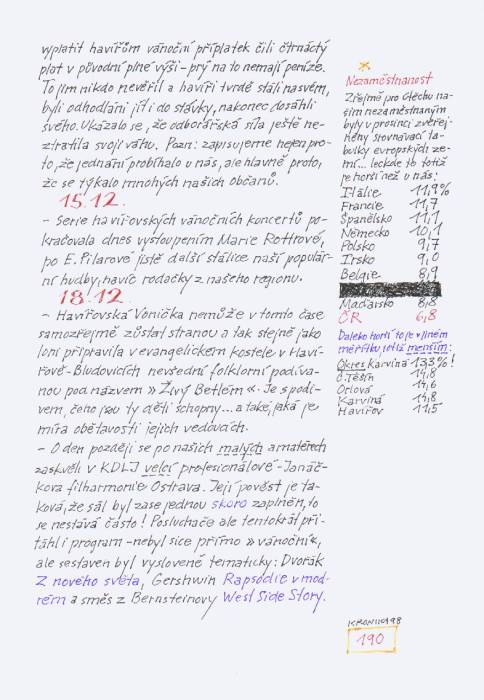 vyplatit havířům vánoční příplatek čili čtrnáctý
plat v původní plné výši - prý na to nemají peníze.
To jim nikdo nevěřil a havíři tvrdě stáli na svém,
byli odhodláni jít i do stávky, nakonec dosáhli
svého. Ukázalo se, že odborářská síla ještě ne-
ztratila svoji váhu. Pozn: zapisujeme nejen pro-
to, že jednání probíhalo u nás, ale hlavně proto,
že se týkalo mnohých našich občanů.
15.12.
- Serie havířovských vánočních koncertů po-
kračovala dnes vystoupením Marie Rottrové,
po E. Pilarové jistě další stálice naší populár-
ní hudby, navíc rodačky z našeho regionu.
18.12.
- Havířovská Vonička nemůže v tomto čase
samozřejmě zůstat stranou a tak stejně jako
loni připravila v evangelickém kostele v Haví-
řově-Bludovicích nevšední folklorní podíva-
nou pod názvem »Živý Betlém«. Je s podi-
vem, čeho jsou ty děti schopny... a také, jaká je
míra obětavosti jejich vedoucích.
- O den později se po našich malých amatérech
zaskvěli v KDLJ velcí profesionálové - Janáč-
kova filharmonie Ostrava. Její pověst je ta-
ková, že sál byl zase jednou skoro zaplněn, to
se nestává často! Posluchače ale tentokrát při-
táhl i program - nebyl sice přímo »vánoční«,
ale sestaven byl vysloveně tematicky: Dvořák
Z nového světa, Gershwin Rapsodie v mod-
rém a směs z Bernsteinovy West Side Story.
Nezaměstnanost
Zřejmě pro útěchu na-
šim nezaměstnaným
byly v prosinci zveřej-
něny srovnávací ta-
bulky evropských ze-
mí... leckde to totiž
je horší než u nás:
Itálie 11,9%
Francie 11,7
Španělsko 11,1
Německo 10,1
Polsko 9,7
Irsko 9,0
Belgie 8,9
Maďarsko 6,8
ČR 6,8
Daleko horší to je v jiném
měřítku, totiž menším:
Okres Karviná 13,3%!
Č. Těšín 14,8
Orlová 14,6
Karviná 14,8
Havířov 11,5
KRONIKA 98
190